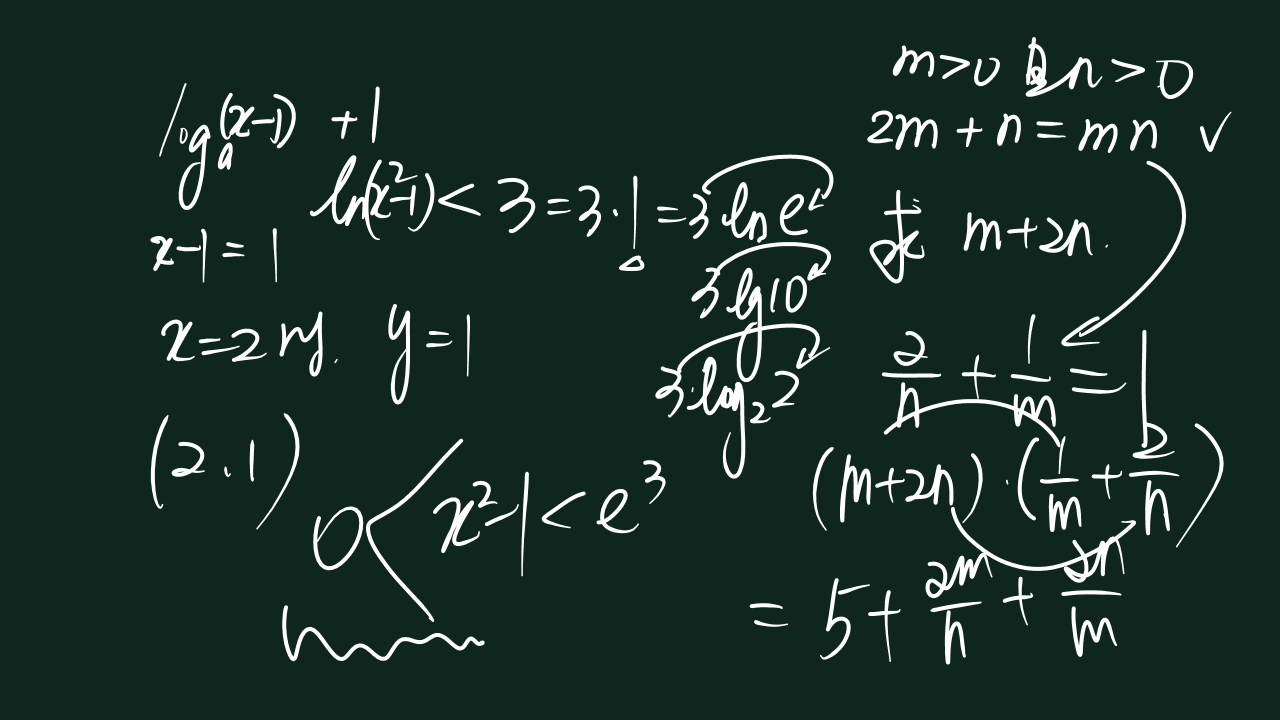 logₐ(x-1) +1
x-1=1
x=2时. y=1
(2.1)
ln(x²-1)<3=3·1=3lne
3lg10
3·log₂2
0<x²-1<e³
m>0 n>0
2m+n=mn ✓
求 m+2n.
2/n + 1/m = 1
(m+2n)·(1/m + 2/n)
= 5 + 2m/n + 2n/m